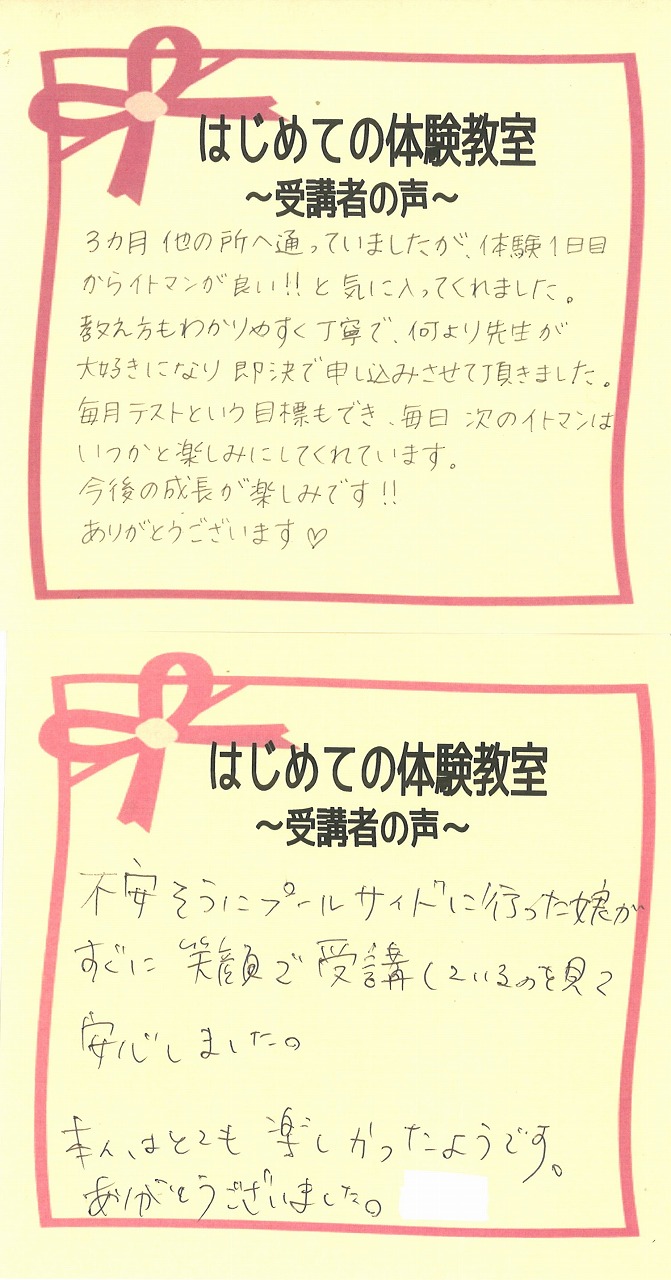 はじめての体験教室
～受講者の声～
3カ月 他の所へ通っていましたが、体験1日目
からイトマンが良い!! と気に入ってくれました。
教え方もわかりやすく丁寧で、何より先生が
大好きになり 即決で申し込みさせて頂きました。
毎月テストという目標もでき、毎日 次のイトマンは
いつかと楽しみにしてくれています。
今後の成長が楽しみです!!
ありがとうございます♡
はじめての体験教室
～受講者の声～
不安そうにプールサイドに行った娘が
すぐに 笑顔で 受講しているのを見て
安心しました。
本人はとても 楽しかったようです。
ありがとうございました。